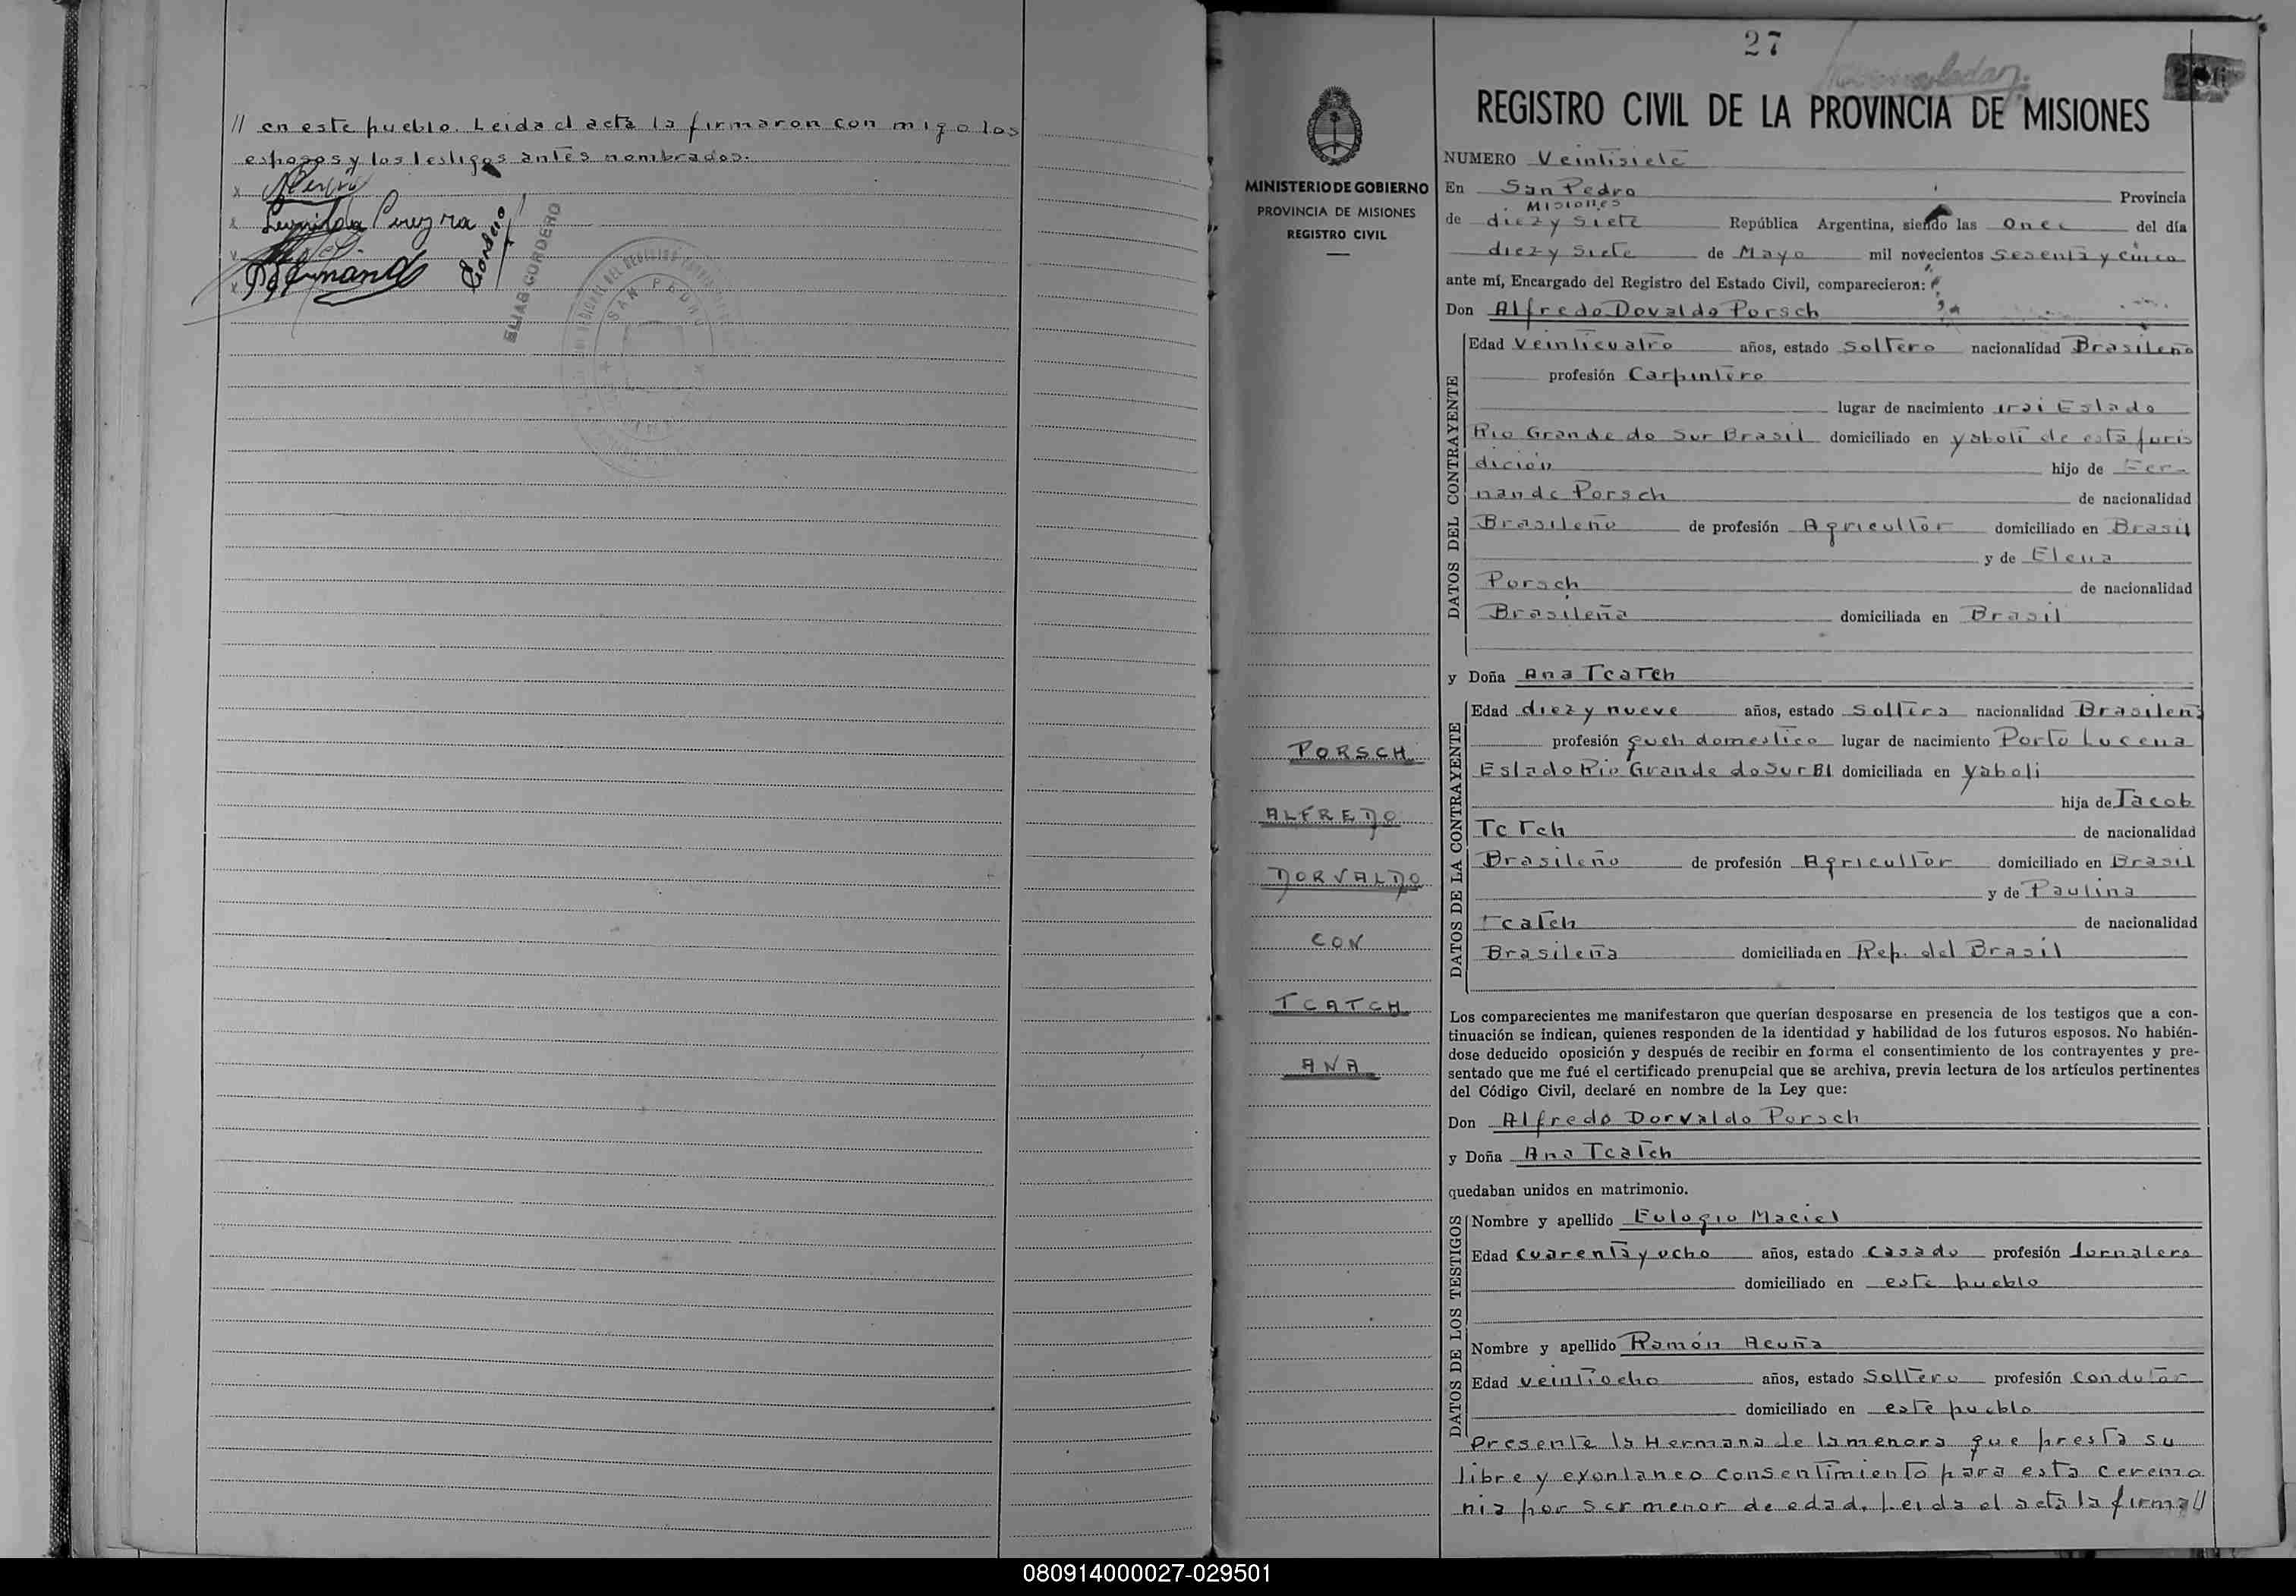 // en este pueblo. Leida el acta la firmaron con migo los
esposos y los testigos antes nombrados.
x
x Leonilda
x
x
Cordero
ELIAS CORDERO
SAN PEDRO
27
REGISTRO CIVIL DE LA PROVINCIA DE MISIONES
MINISTERIO DE GOBIERNO
PROVINCIA DE MISIONES
REGISTRO CIVIL
PORSCH
ALFREDO
DORVALDO
CON
TCATCH
ANA
NUMERO Veintisiete
En San Pedro Provincia
Misiones
de diez y siete República Argentina, siendo las Once del día
diez y siete de Mayo mil novecientos sesenta y cinco
ante mí, Encargado del Registro del Estado Civil, comparecieron:
Don Alfredo Dovaldo Porsch
DATOS DEL CONTRAYENTE
Edad Veinticuatro años, estado soltero nacionalidad Brasileño
profesión Carpintero
lugar de nacimiento irai Estado
Rio Grande do Sur Brasil domiciliado en yaboti de esta juris
dición hijo de Fer-
nando Porsch de nacionalidad
Brasileño de profesión Agricultor domiciliado en Brasil
y de Elena
Porsch de nacionalidad
Brasileña domiciliada en Brasil
y Doña Ana Tcatch
DATOS DE LA CONTRAYENTE
Edad diez y nueve años, estado soltera nacionalidad Brasileña
profesión queh domestico lugar de nacimiento Porto Lucena
Estado Rio Grande do Sur Bl domiciliada en yaboti
hija de Jacob
Tc Tch de nacionalidad
Brasileño de profesión Agricultor domiciliado en Brasil
y de Paulina
Tcatch de nacionalidad
Brasileña domiciliada en Rep. del Brasil
Los comparecientes me manifestaron que querían desposarse en presencia de los testigos que a con-
tinuación se indican, quienes responden de la identidad y habilidad de los futuros esposos. No habién-
dose deducido oposición y después de recibir en forma el consentimiento de los contrayentes y pre-
sentado que me fué el certificado prenupcial que se archiva, previa lectura de los artículos pertinentes
del Código Civil, declaré en nombre de la Ley que:
Don Alfredo Dorvaldo Porsch
y Doña Ana Tcatch
quedaban unidos en matrimonio.
DATOS DE LOS TESTIGOS
Nombre y apellido Eulogio Maciel
Edad cuarenta y ocho años, estado casado profesión Jornalero
domiciliado en este pueblo
Nombre y apellido Ramón Acuña
Edad veintiocho años, estado Soltero profesión condutor
domiciliado en este pueblo
Presente la Hermana de la menora que presta su
libre y exontaneo consentimiento para esta ceremo
nia por ser menor de edad. Leida el acta la firma//
080914000027-029501